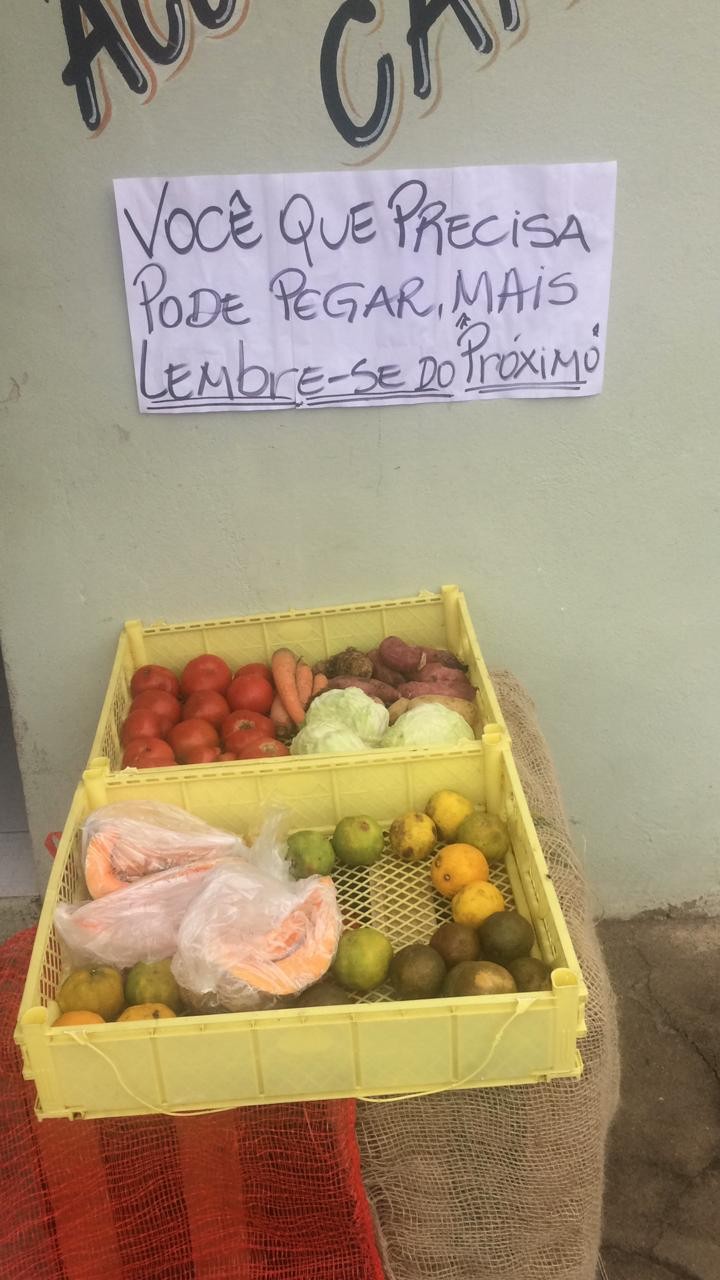 VOCÊ QUE PRECISA
PODE PEGAR, MAIS
LEMbrE-SE DO PróxiMO